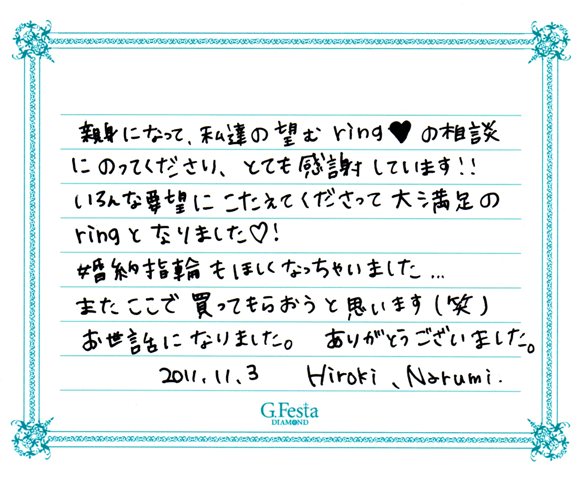 親身になって、私達の望む ring♥の相談
にのってくださり、とても感謝しています!!
いろんな要望にこたえてくださって大満足の
ringとなりました♡!
婚約指輪もほしくなっちゃいました…
またここで買ってもらおうと思います(笑)
お世話になりました。 ありがとうございました。
2011.11.3 Hiroki、Narumi.
G.Festa
DIAMOND